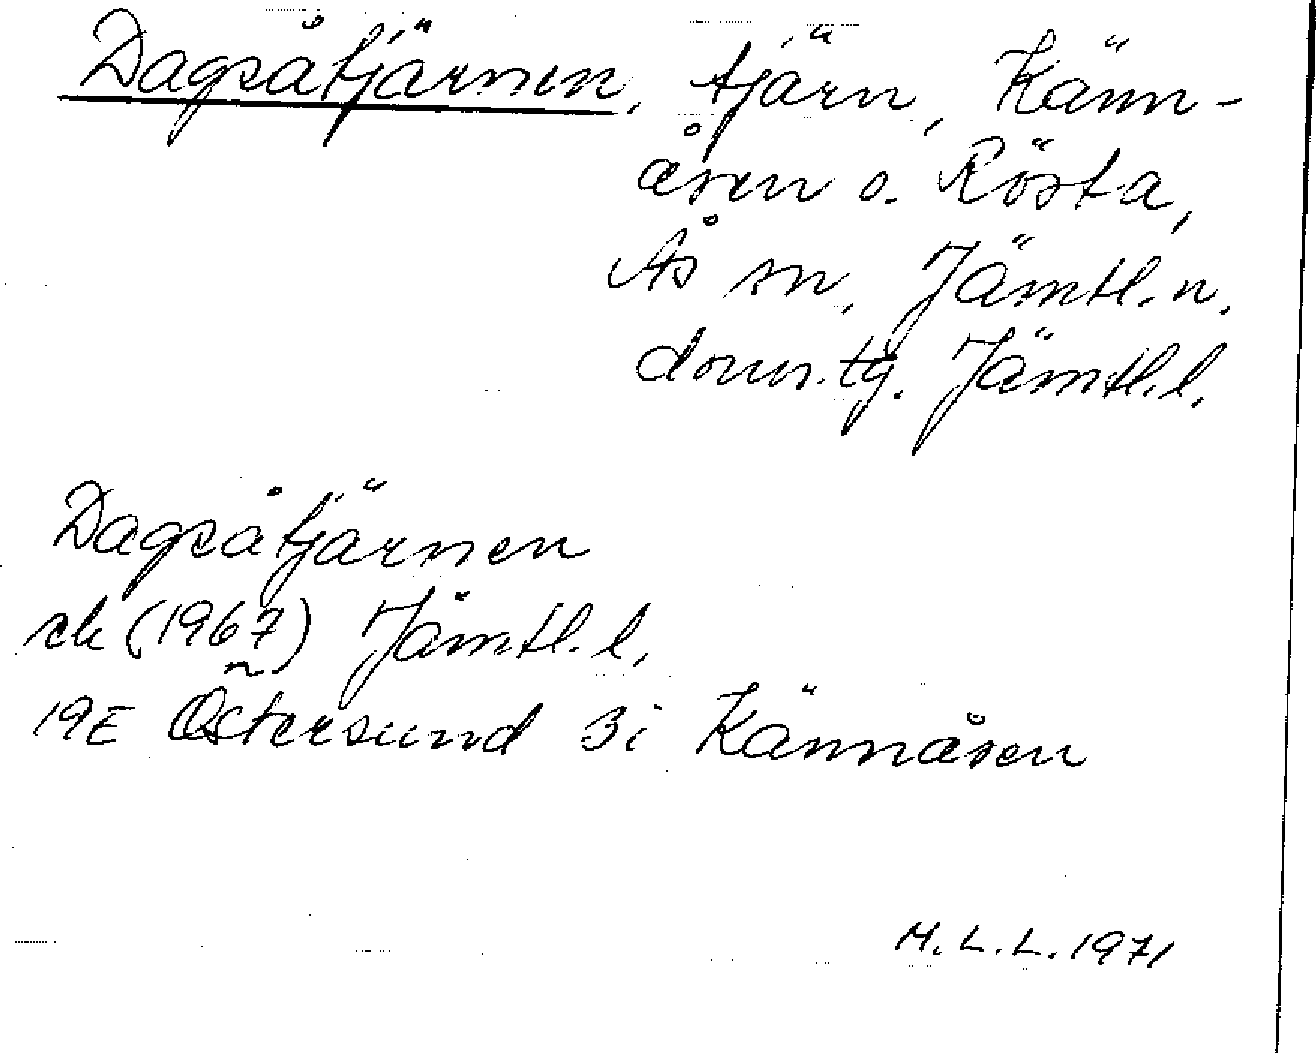 Dagsåtjärnen, tjärn, Känn-
åsen o. Rösta,
Ås sn, Jämtl. n.
doms.tg. Jämtl.l.
Dagsåtjärnen
ek (1967) Jämtl. l.
19E Östersund 3i Kännåsen
M.L.L. 1971